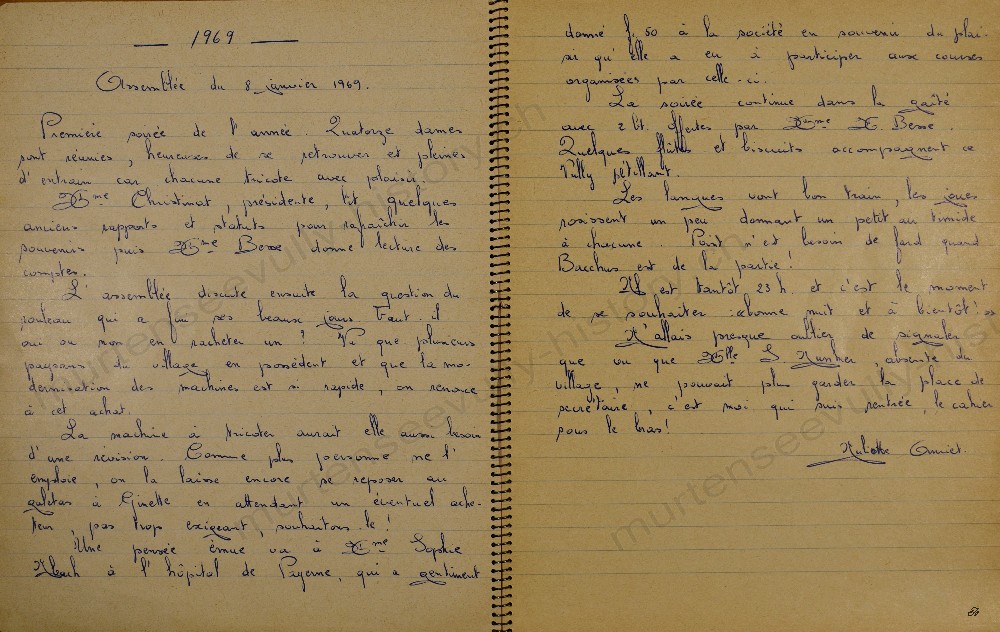 1969
Assemblée du 8 janvier 1969.
Première soirée de l'année. Quatorze dames
sont réunies, heureuses de se retrouver et pleines
d'entrain car chacune tricote avec plaisir.
Mme Christinat, présidente, lit quelques
anciens rapports et statuts pour rafraîchir les
souvenirs puis Mme Besse donne lecture des
comptes.
L'assemblée discute ensuite la question du
rouleau qui a fini ses beaux jours. Faut-il
oui ou non en racheter un ? Vu que plusieurs
paysans du village en possèdent et que la mo-
dernisation des machines est si rapide, on renonce
à cet achat.
La machine à tricoter aurait elle aussi besoin
d'une revision. Comme plus personne ne l'
emploie, on la laisse encore se reposer au
galetas à Ginette en attendant un éventuel ache-
teur, pas trop exigeant, souhaitons-le !
Une pensée émue va à Mme Sophie
à l'hôpital de Payerne, qui a gentiment
donné f. 50 à la société en souvenir du plai-
sir qu'elle a eu à participer aux courses
organisées par celle-ci.
La soirée continue dans la gaîté
avec 2 lt. offertes par Mme H. Besse.
Quelques flûtes et biscuits accompagnent ce
Vully pétillant.
Les langues vont bon train, les joues
rosissent un peu donnant un petit air timide
à chacune. Point n'est besoin de fard quand
Bacchus est de la partie !
Il est tantôt 23 h. et c'est le moment
de se souhaiter : «bonne nuit et à bientôt !»
J'allais presque oublier de signaler
que vu que Mlle absente du
village, ne pouvait plus garder la place de
secrétaire, c'est moi qui suis rentrée, le cahier
sous le bras !
Juliette
murtenseevully-history.ch
murtenseevully-history.ch
murtenseevully-history.ch
murtenseevully-history.ch